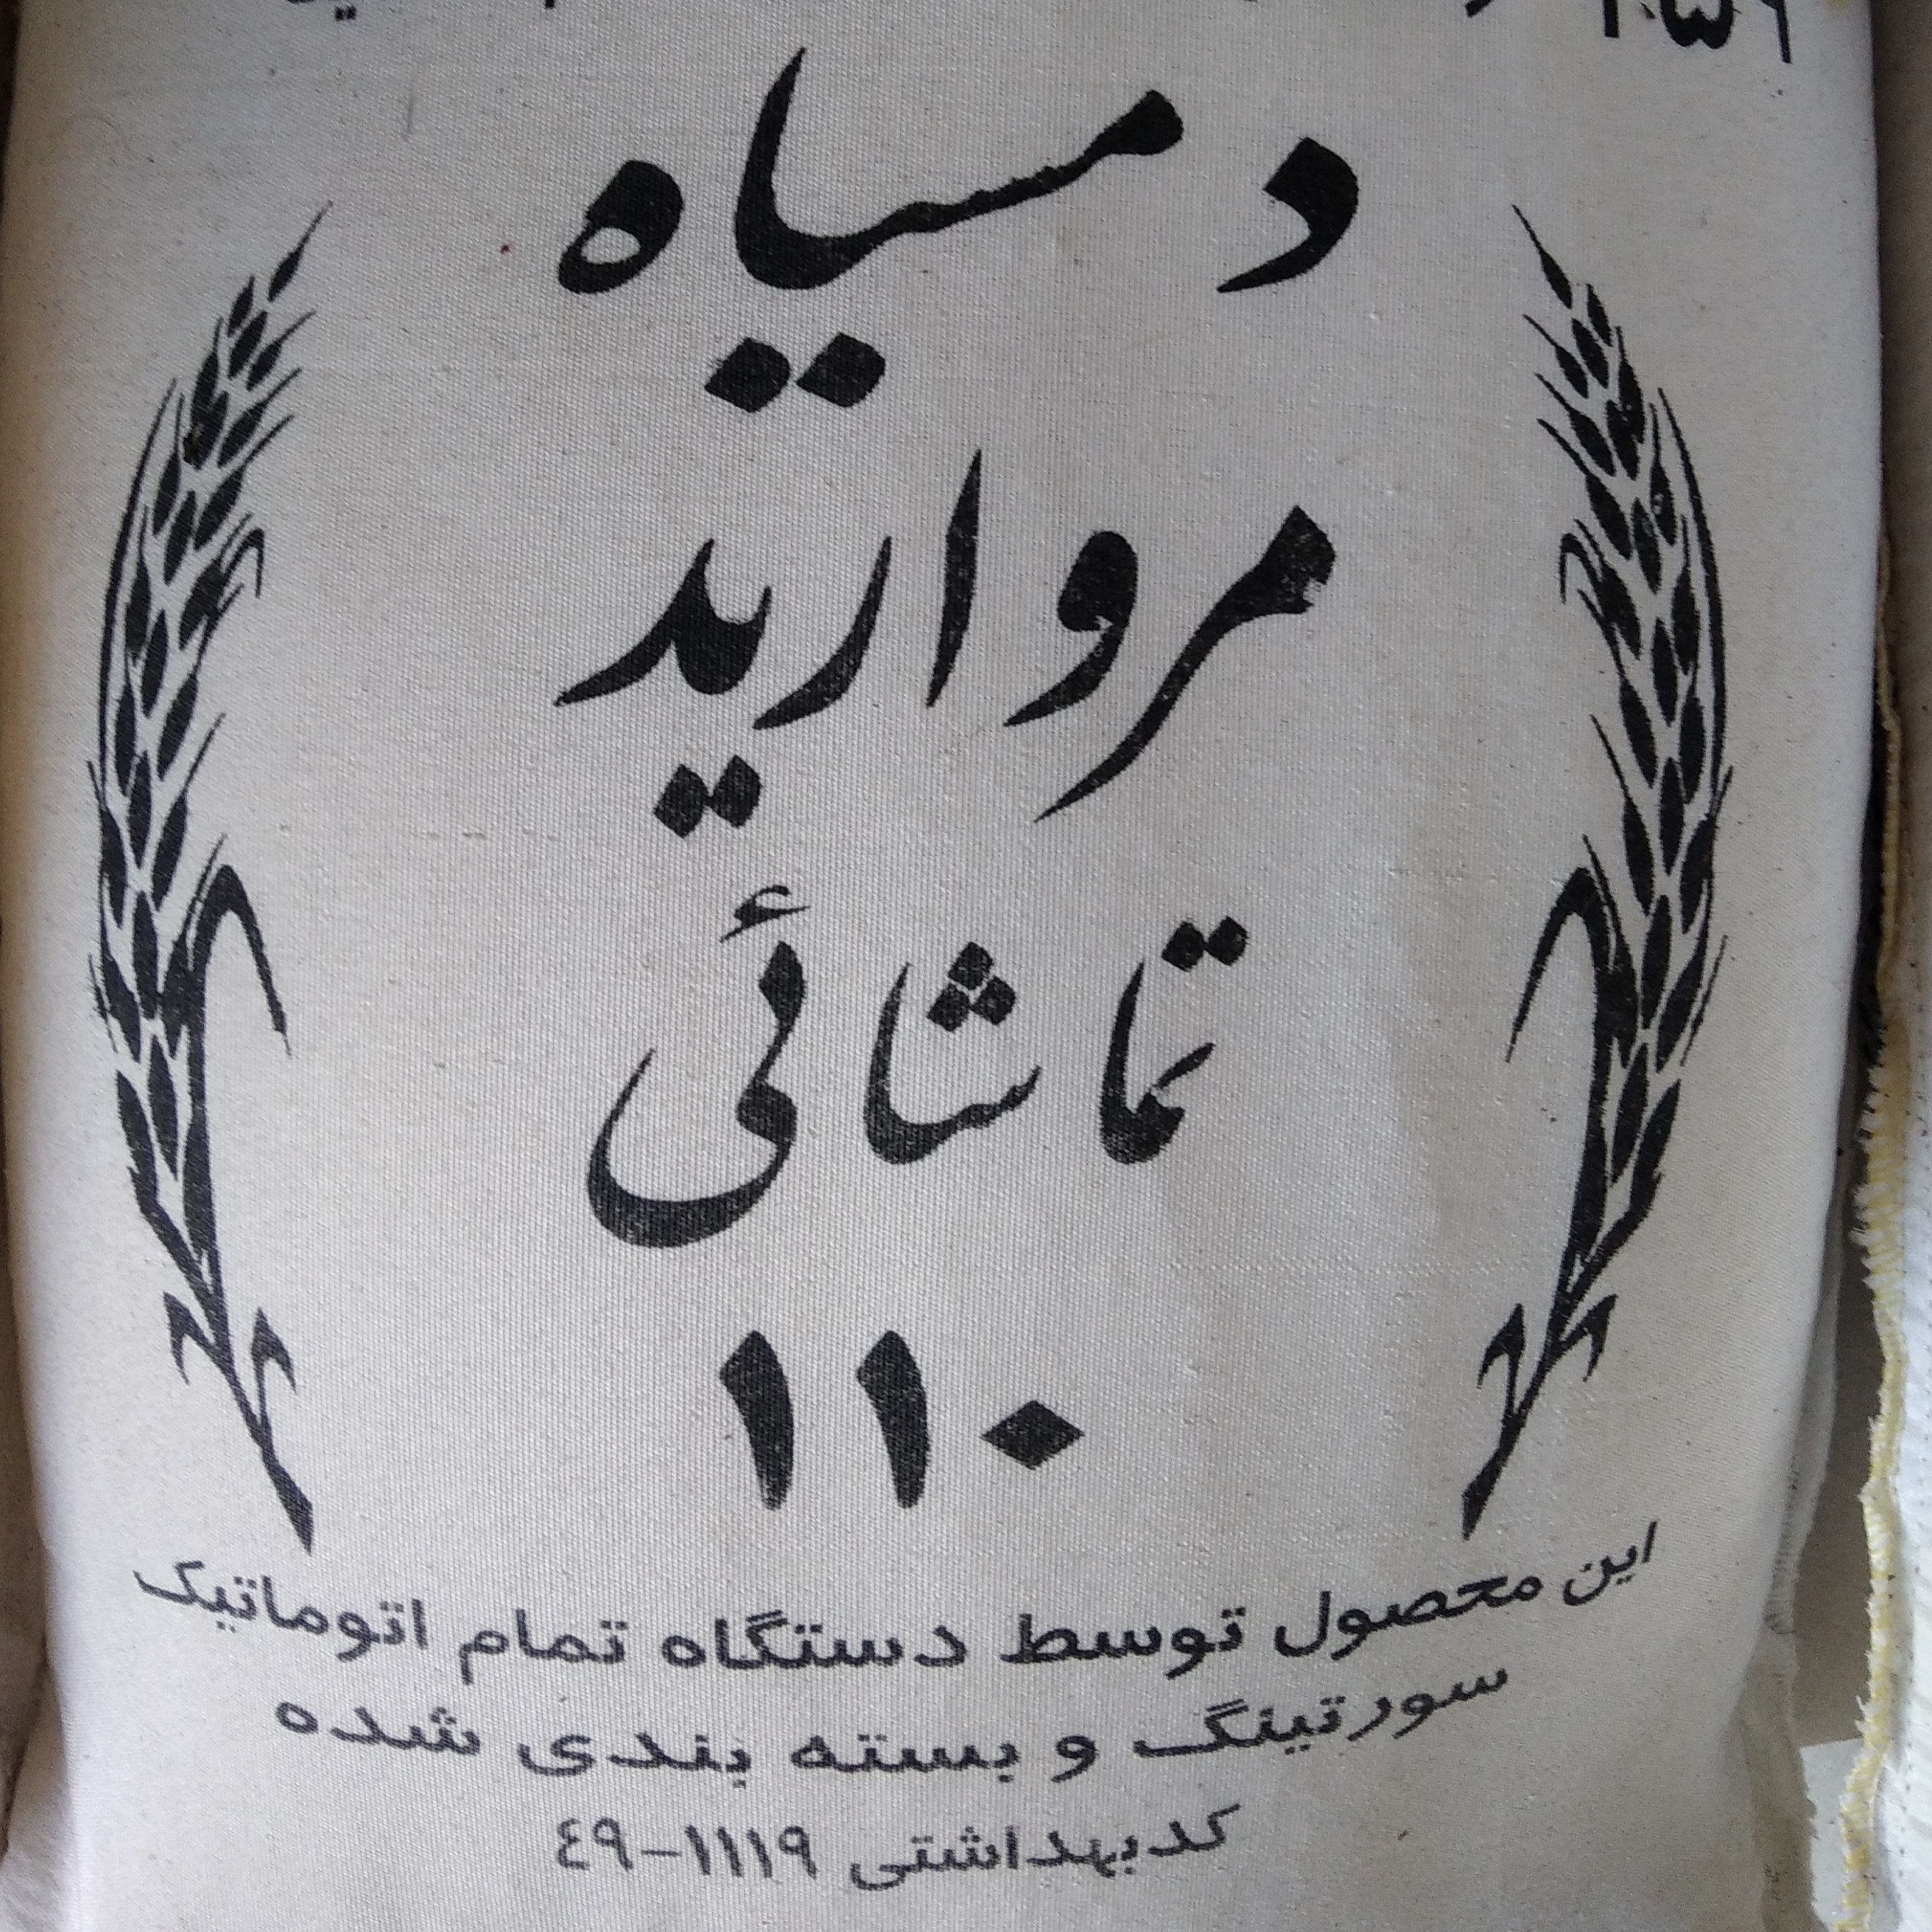 دمسیاه
مروارید
تماشائی
۱۱۰
این محصول توسط دستگاه تمام اتوماتیک
سورتینگ و بسته بندی شده
کدبهداشتی ٤٩-١١١٩